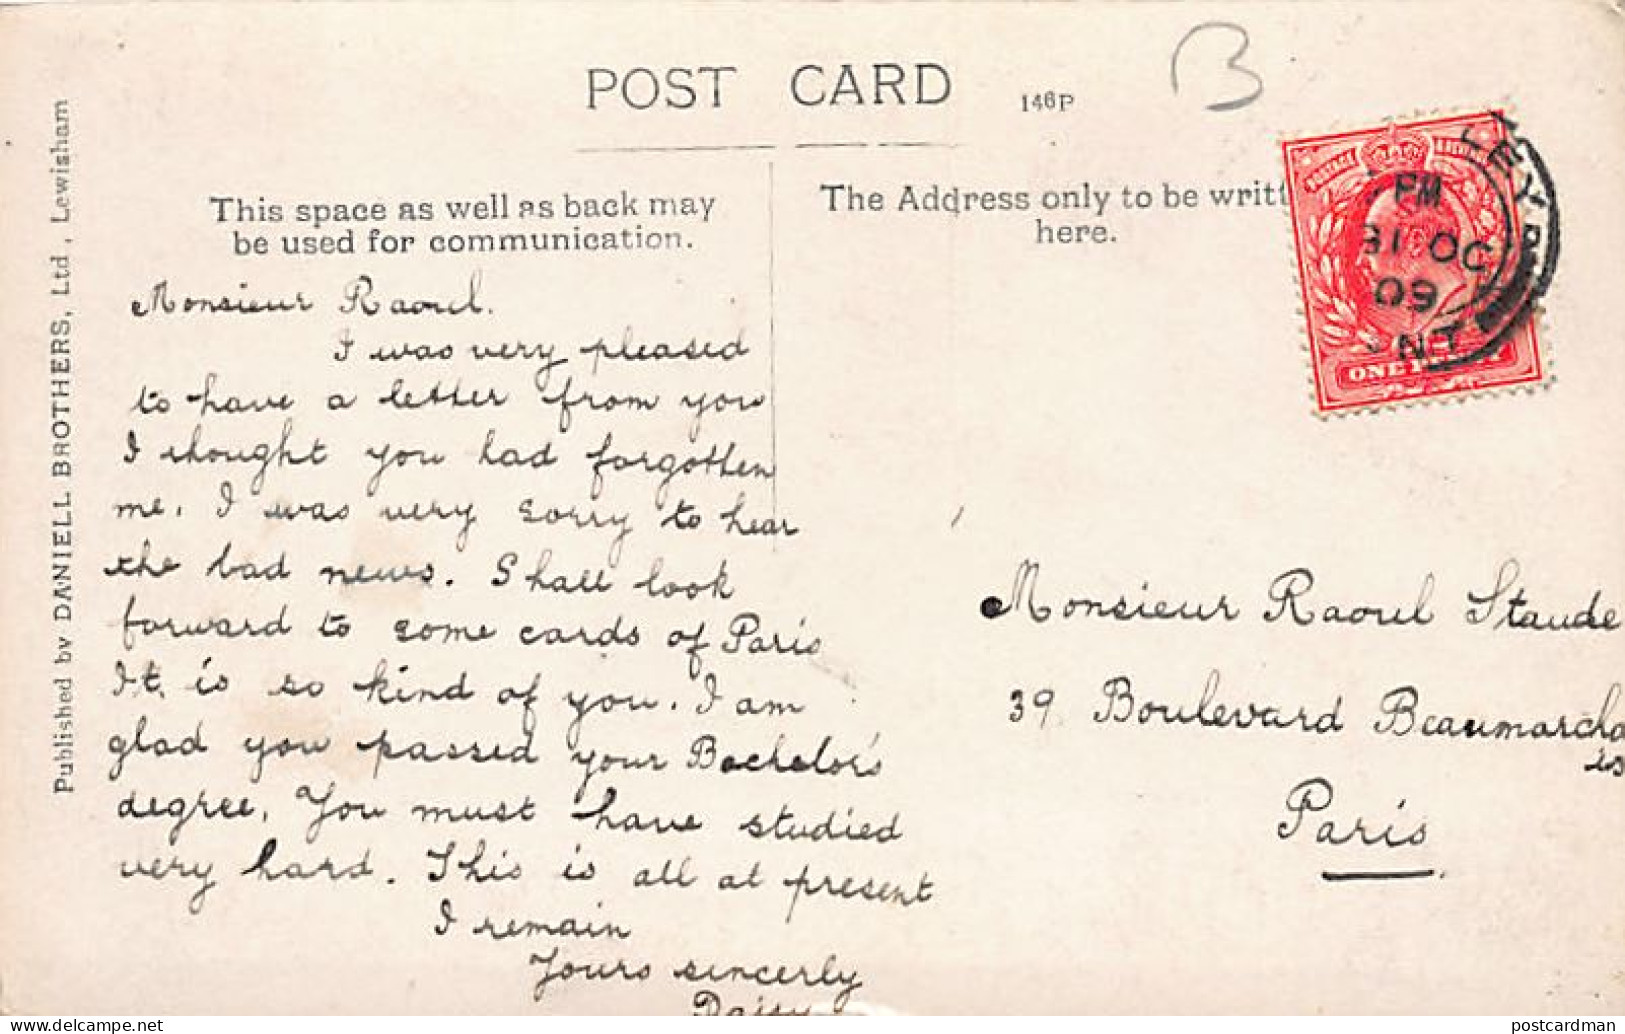 POST CARD
146P
B
Published by DANIELL BROTHERS, Ltd, Lewisham
This space as well as back may
be used for communication.
The Address only to be writt
here.
POSTAGE
PM
31 OC
09
NT
ONE PENNY
Monsieur Raoul.
I was very pleased
to have a letter from you
I thought you had forgotten
me. I was very sorry to hear
the bad news. Shall look
forward to some cards of Paris
It is so kind of you. I am
glad you passed your Bachelor's
degree. You must have studied
very hard. This is all at present
I remain
Yours sincerly
Daisy
Monsieur Raoul Staude
39 Boulevard Beaumarcha
is
Paris
www.delcampe.net
postcardman